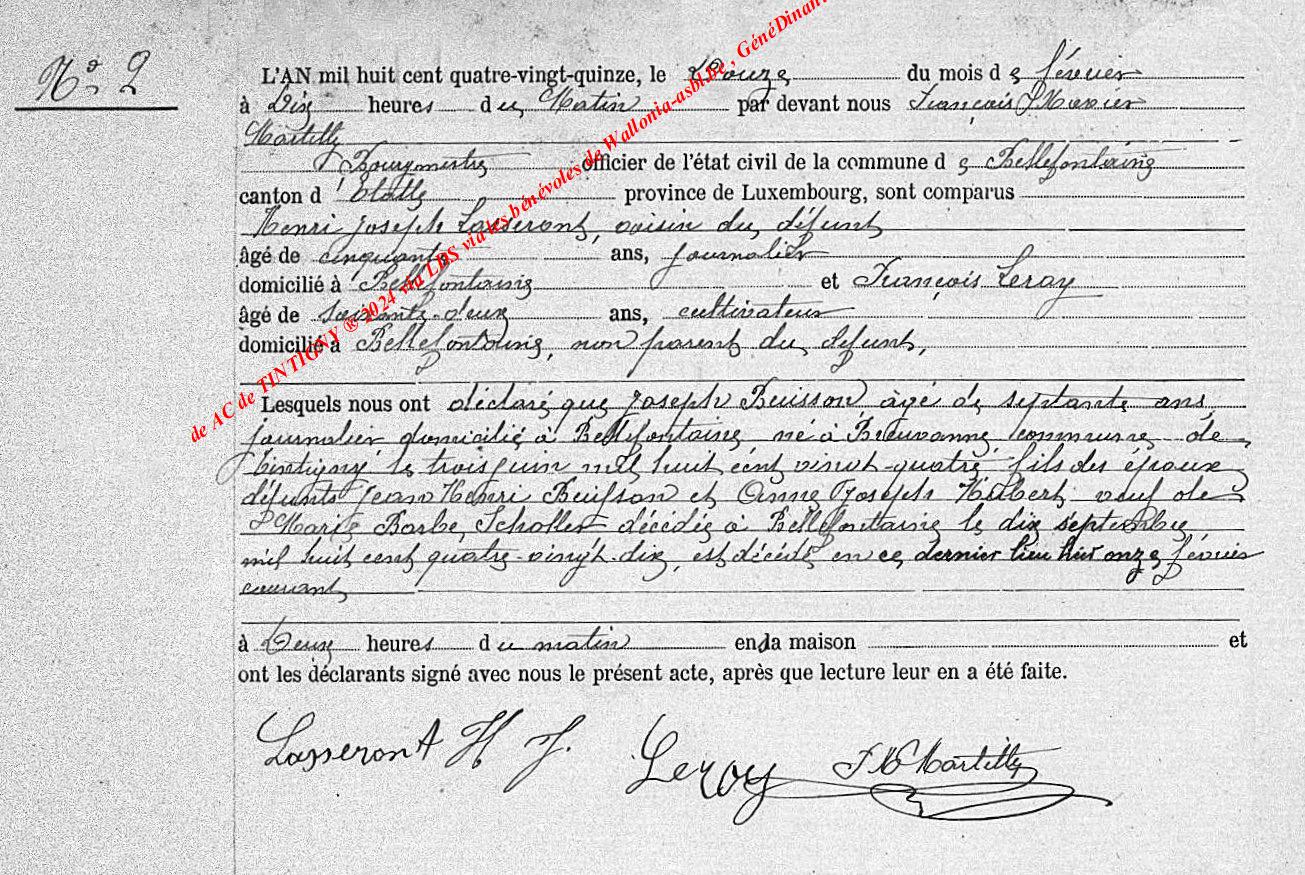 N° 2
L'AN mil huit cent quatre-vingt-quinze, le Douze du mois de février
à Dix heures du Matin par devant nous François Xavier
Martilly
Bourgmestre officier de l'état civil de la commune de Bellefontaine
canton d'Etalle province de Luxembourg, sont comparus
Henri Joseph Lasseront, voisin du défunt
âgé de cinquante ans, journalier
domicilié à Bellefontaine et François Leroy
âgé de soixante-deux ans, cultivateur
domicilié à Bellefontaine, non parent du défunt,
Lesquels nous ont déclaré que Joseph Buisson, âgé de septante ans,
journalier domicilié à Bellefontaine né à commune de
Tintigny le trois juin mil huit cent vingt-quatre fils des époux
défunts Jean Henri Buisson et Anne Joseph Hubert, veuf de
Marie Barbe Scholler décédée à Bellefontaine le dix septembre
mil huit cent quatre-vingt-dix, est décédé en ce dernier lieu hier onze février
courant
à Deux heures du matin en sa maison et
ont les déclarants signé avec nous le présent acte, après que lecture leur en a été faite.
Lasseront H J. Leroy F X Martilly
de AC de TINTIGNY ® 2024 via LDS via les bénévoles de Wallonia-asbl.be , GénéDinant